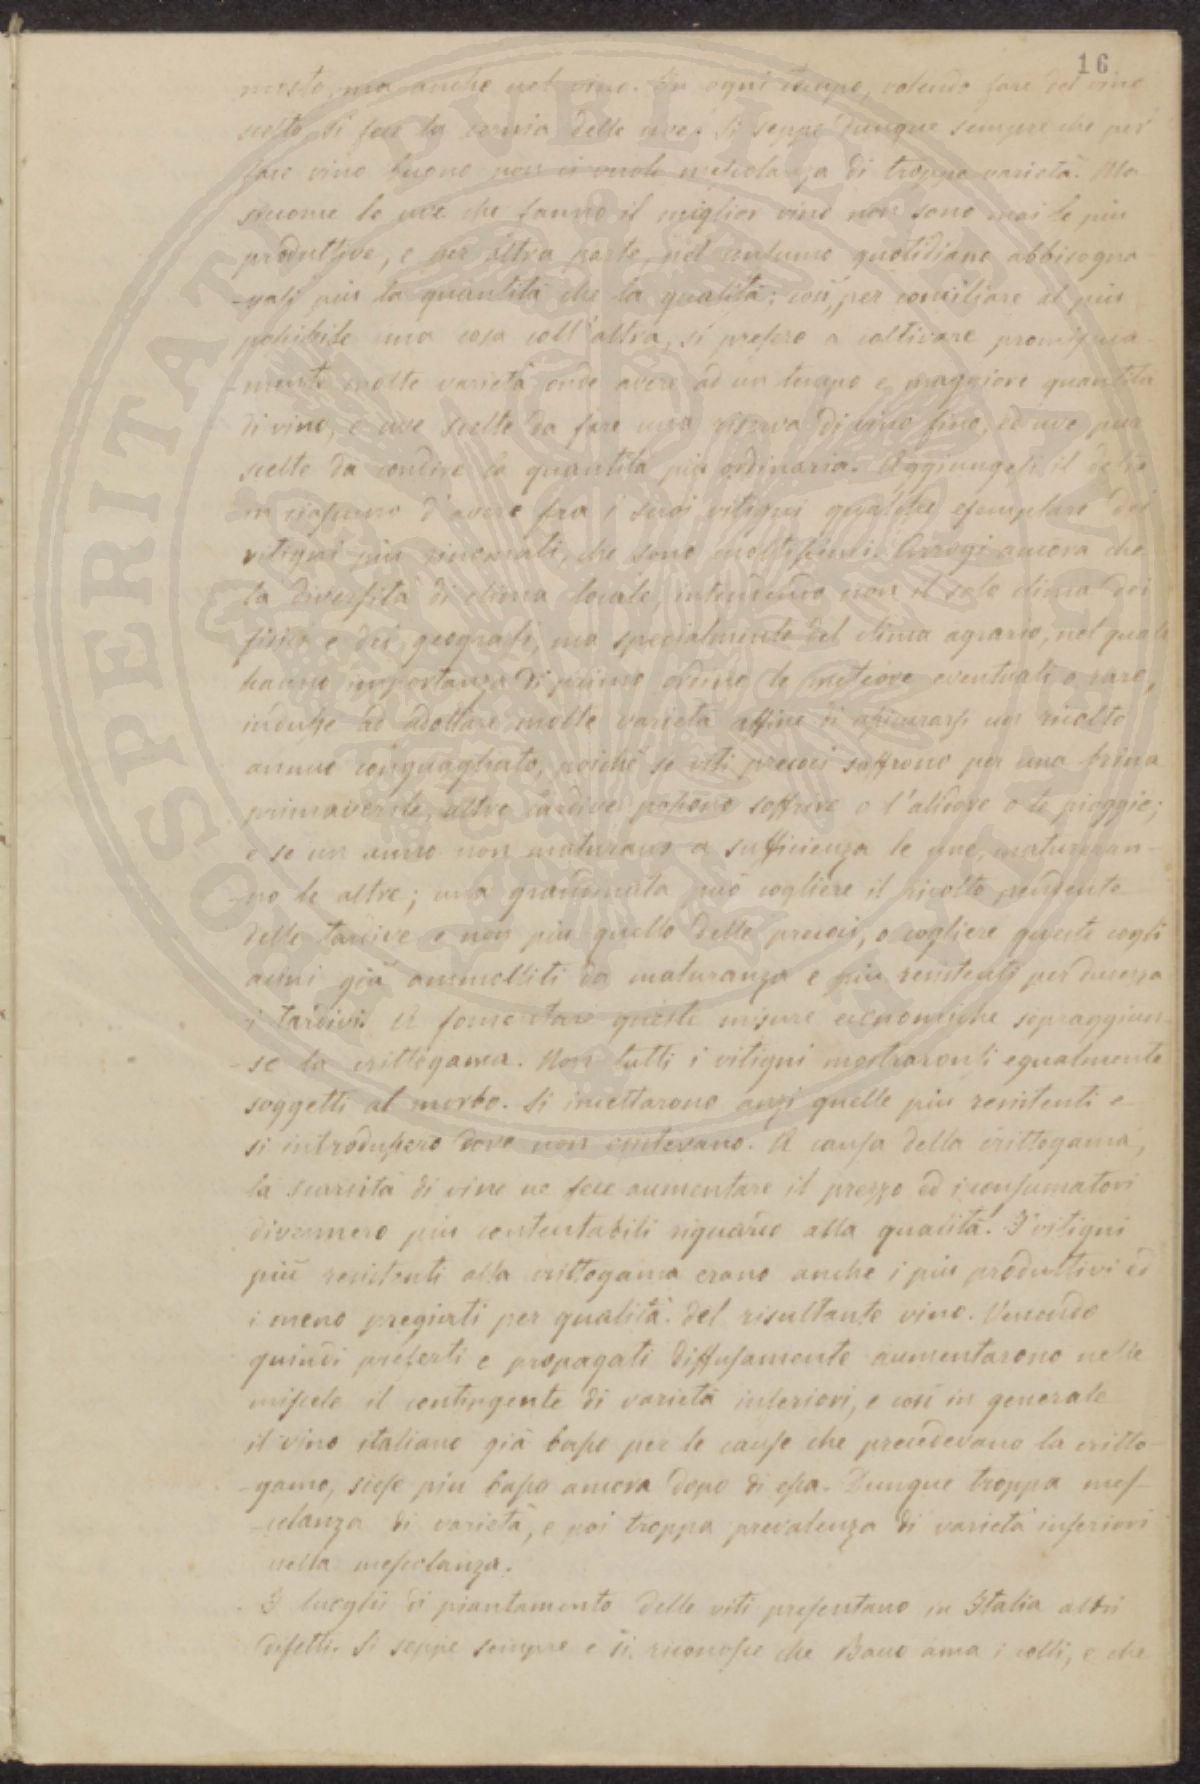 16
mosto, ma anche nel vino. In ogni tempo, volendo fare del vino
scelto, si fece la cernia delle uve. Si seppe dunque sempre che per
fare vino buono non ci vuole mescolanza di troppe varietà. Ma
siccome le uve che fanno il miglior vino non sono mai le più
produttive, e per altra parte, nel consumo quotidiano abbisogna-
-vasi più la quantità che la qualità: così, per conciliare al più
possibile una cosa coll'altra, si presero a coltivare promiscua-
-mente molte varietà onde avere ad un tempo e maggiore quantità
di vino, e uve scelte da fare una riserva di vino fino, ed uve pur
scelte da condire la quantità più ordinaria. Aggiungesi il
in ciascuno d'avere fra i suoi vitigni qualche esemplare dei
vitigni più rinomati, che sono moltissimi. Arrogi ancora che
la diversità di clima locale, intendendo non il solo clima dei
fisici e dei geografi, ma specialmente del clima agrario, nel quale
hanno importanza di primo ordine le meteore eventuali o rare,
indusse ad adottare molte varietà affine di assicurarsi un ricolto
annuo conguagliato, poichè se viti precoci soffrono per una brina
primaverile, altre tardive possono soffrire o l'alidore o le pioggie;
e se un anno non maturano a sufficienza le une, matureran-
-no le altre; una grandinata può cogliere il ricolto pendente
delle tardive e non più quello delle precoci, o cogliere queste cogli
acini già ammolliti da maturanza e più resistenti per durezza
i tardivi. A fomentare queste misure economiche sopraggiun-
-se la crittogama. Non tutti i vitigni mostraronsi egualmente
soggetti al morbo. Si incettarono anzi quelle più resistenti e
si introdussero dove non esistevano. A causa della crittogama,
la scarsità di vino ne fece aumentare il prezzo ed i consumatori
divennero più contentabili riguardo alla qualità. I vitigni
più resistenti alla crittogama erano anche i più produttivi ed
i meno pregiati per qualità del risultante vino. Venendo
quindi preferti e propagati diffusamente aumentarono nelle
miscele il contingente di varietà inferiori, e così in generale
il vino italiano già basso per le cause che precedevano la critto-
-gama, scese più basso ancora dopo di essa. Dunque troppa mes-
-colanza di varietà, e poi troppa prevalenza di varietà inferiori
nella mescolanza.
I luoghi di piantamento delle viti presentano in Italia altri
difetti. Si seppe sempre e si riconosce che Bacco ama i colli, e che
PROSPERITATI PUBLICAE AUGENDAE